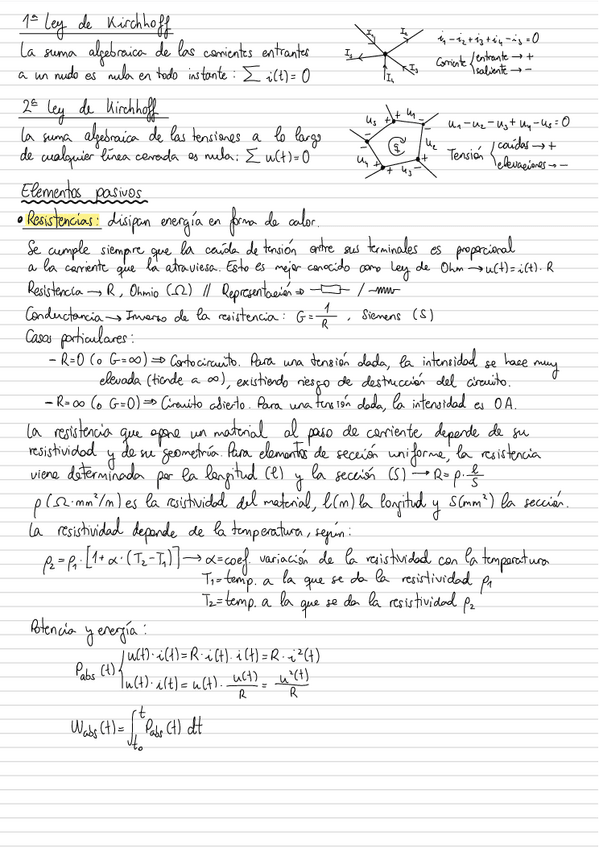 1ª Ley de Kirchhoff
La suma algebraica de las corrientes entrantes
a un nudo es nula en todo instante: ∑ i(t)=0
i₁-i₂+i₃+i₄-i₅=0
Corriente { entrante → +
saliente → -
2ª Ley de Kirchhoff
La suma algebraica de las tensiones a lo largo
de cualquier línea cerrada es nula: ∑ u(t)=0
u₁-u₂-u₃+u₄-u₅=0
Tensión { caídas → +
elevaciones → -
Elementos pasivos
• Resistencias: disipan energía en forma de calor.
Se cumple siempre que la caída de tensión entre sus terminales es proporcional
a la corriente que la atraviesa. Esto es mejor conocido como Ley de Ohm → u(t)=i(t)·R
Resistencia → R, Ohmio (Ω) // Representación ⇒ /
Conductancia → Inverso de la resistencia: G=1/R, Siemens (S)
Casos particulares:
- R=0 (o G=∞) ⇒ Cortocircuito. Para una tensión dada, la intensidad se hace muy
elevada (tiende a ∞), existiendo riesgo de destrucción del circuito.
- R=∞ (o G=0) ⇒ Circuito abierto. Para una tensión dada, la intensidad es 0A.
La resistencia que opone un material al paso de corriente depende de su
resistividad y de su geometría. Para elementos de sección uniforme, la resistencia
viene determinada por la longitud (ℓ) y la sección (S) → R=ρ·ℓ/S
ρ(Ω·mm²/m) es la resistividad del material, ℓ(m) la longitud y S(mm²) la sección.
La resistividad depende de la temperatura, según:
ρ₂=ρ₁·[1+α·(T₂-T₁)] → α=coef. variación de la resistividad con la temperatura
T₁=temp. a la que se da la resistividad ρ₁
T₂=temp. a la que se da la resistividad ρ₂
Potencia y energía:
P_abs(t) { u(t)·i(t)=R·i(t)·i(t)=R·i²(t)
u(t)·i(t)=u(t)·u(t)/R=u²(t)/R
W_abs(t)=∫_t₀^t P_abs(t) dt